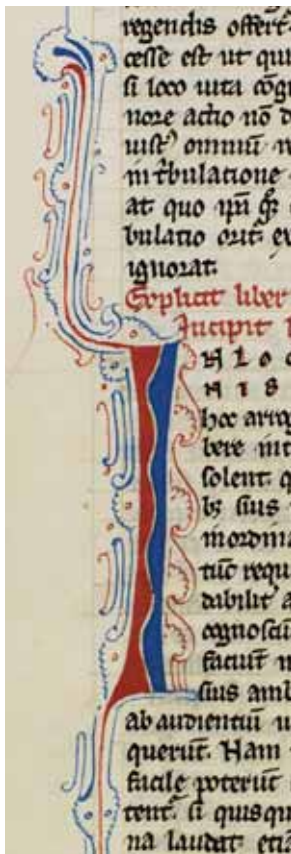 regendis offert
cesse est ut qui
si loco uita cogn
nore actio nō d
uist᷒ omniū
in t̄bulatione
at quo ip̄i
bulatio orit᷑ ex
ignorat.
Explicit liber
Incipit
N L O C
N I S
hoc arrog
bere int
solent
bꝫ suis
inordina
tūc requi
dabilit᷑ a
cognoscū
faciūt
suis amb
ab audientiū u
querūt. Nam
facile poterūt
tent. si quisqu
na laudat etiā